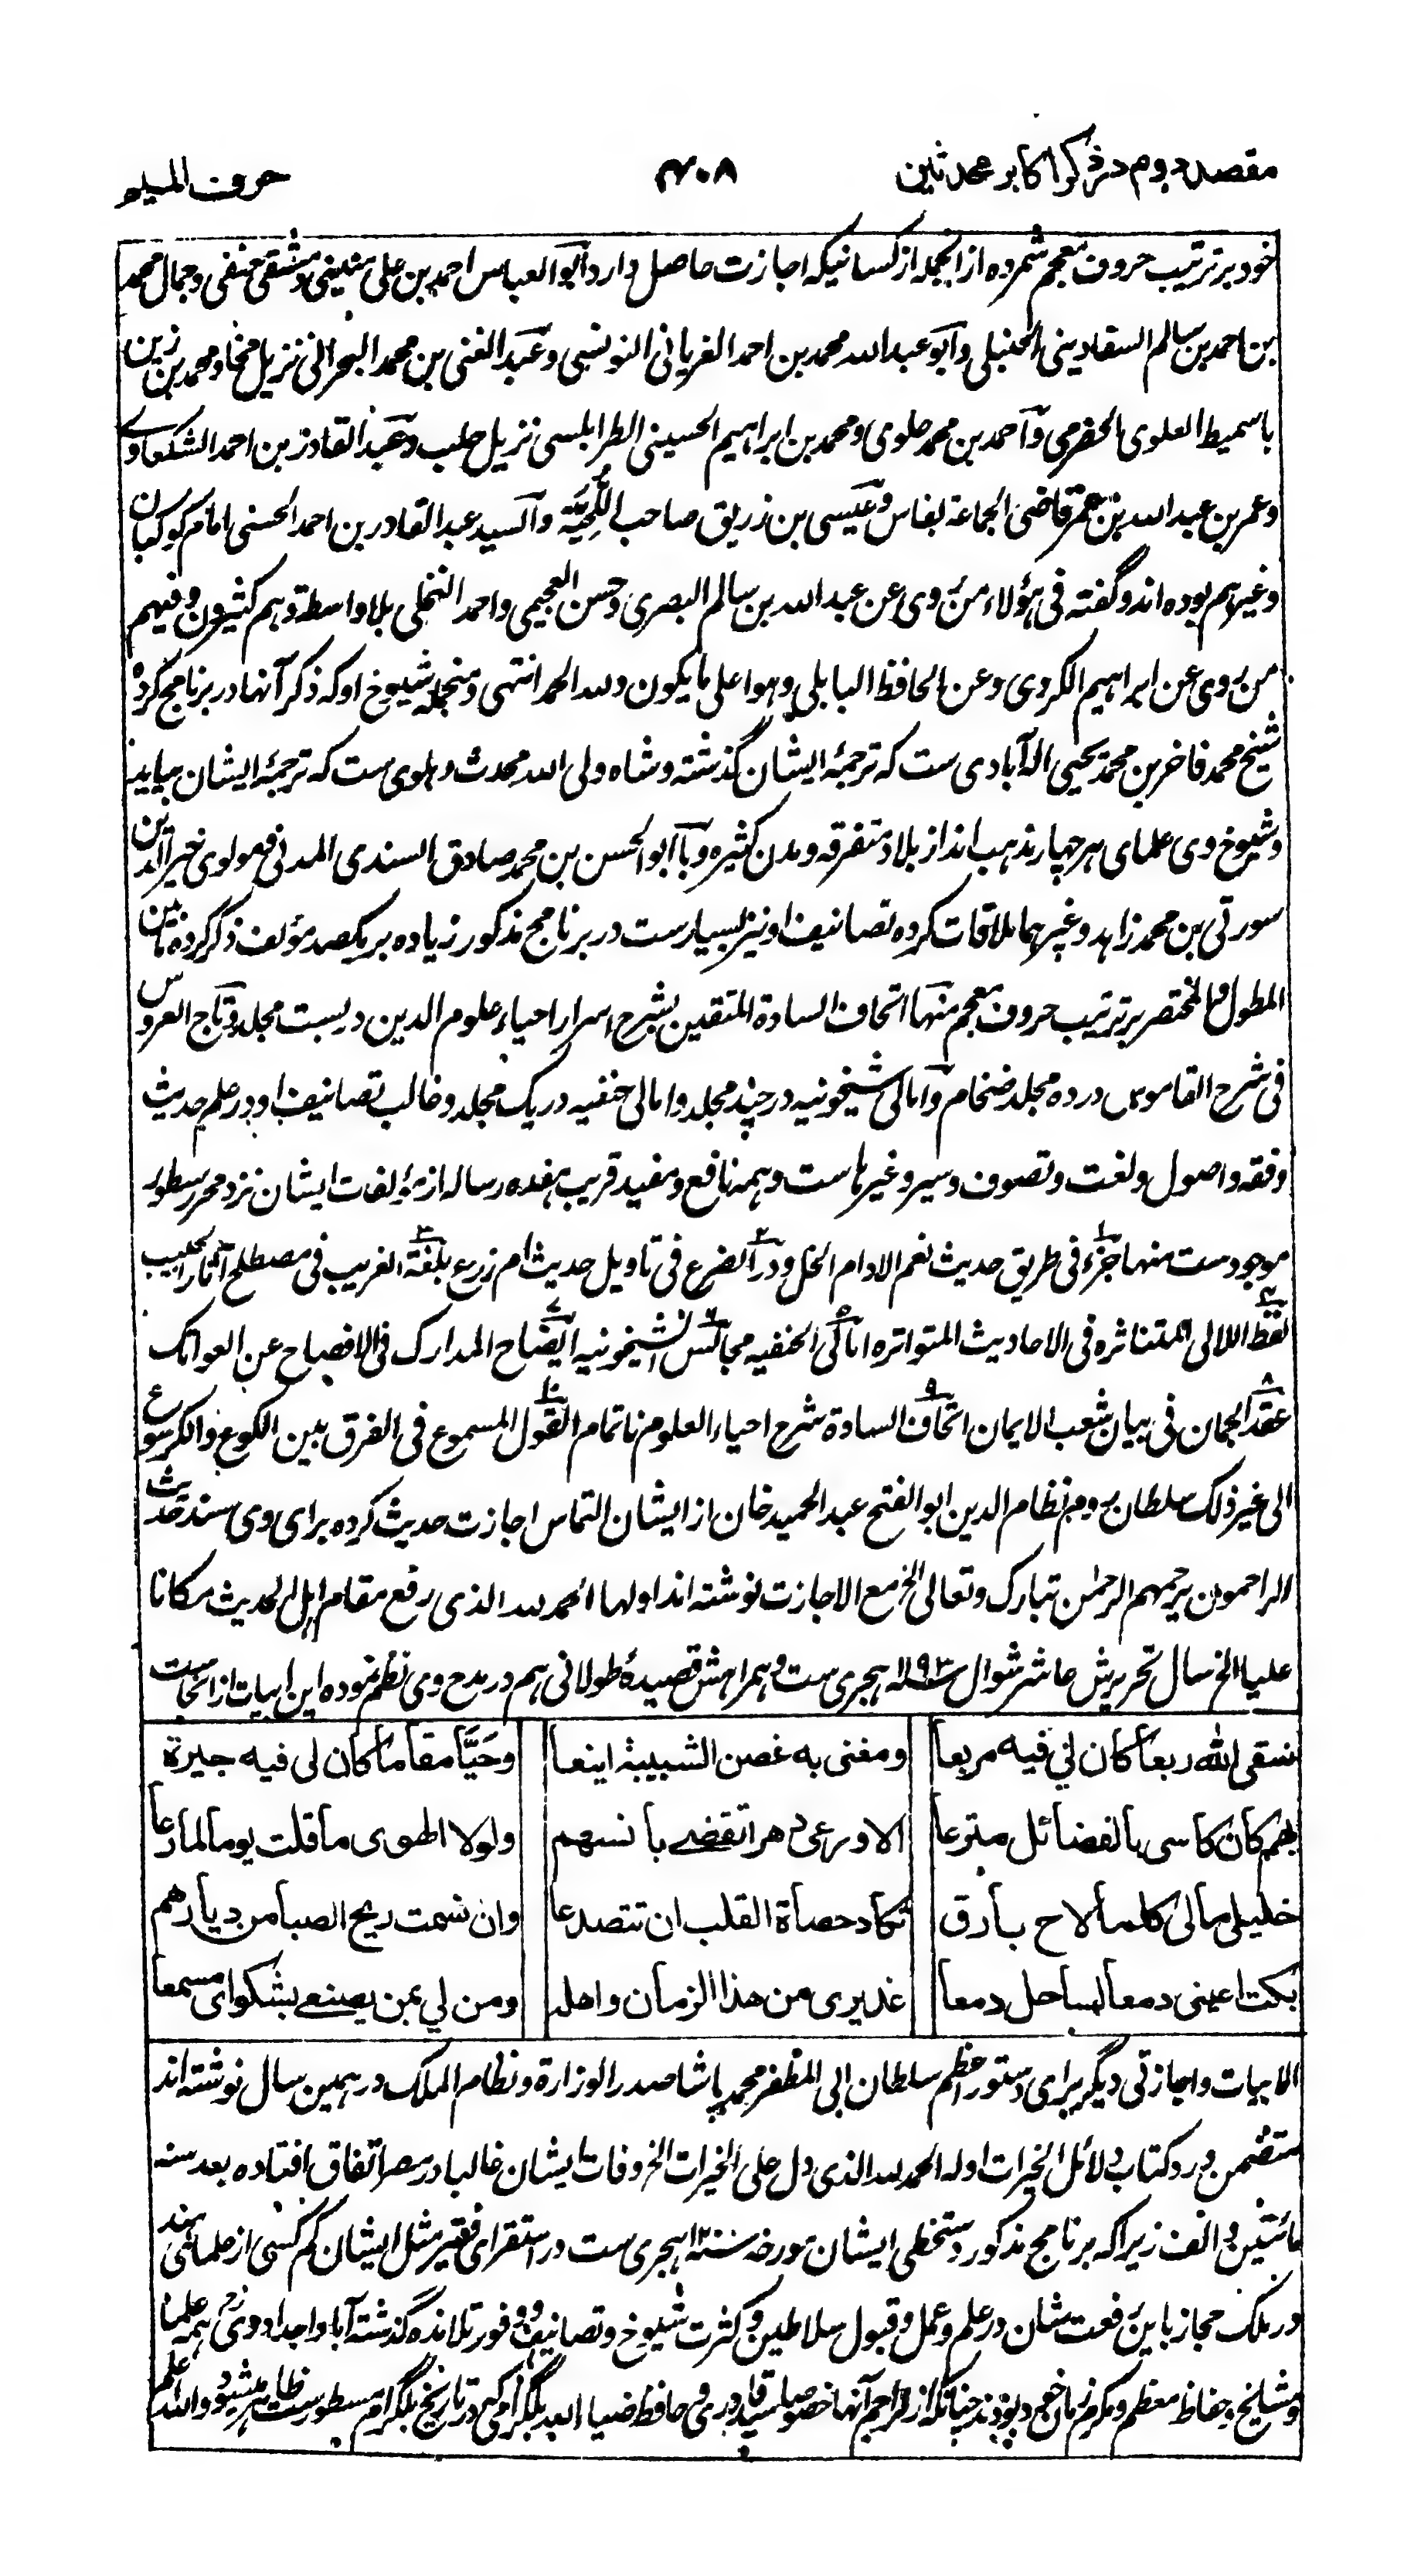 مقصد دوم در ذکر اکابر محدثین ۴۰۸ حرف المیم
خود بر ترتیب حروف معجم شمرده از انجمله از کسانیکه اجازت حاصل دارد ابو العباس احمد بن علی منینی دمشقی حنفی و جمال محمد
بن احمد بن سالم السفارینی الحنبلی و ابو عبد الله محمد بن احمد الغریانی التونسی و عبد الغنی بن محمد البحرانی نزیل مخا و محمد بن زین
باسمیط العلوی الحضرمی و احمد بن محمد حلوی و محمد بن ابراهیم الحسینی الطرابلسی نزیل حلب و عبد القادر بن احمد الشکعاوے
و عمر بن عبد الله بن عمر قاضی الجماعة بفاس و عیسی بن زریق صاحب اللُّحَیَّة و السید عبد القادر بن احمد الحسنی امام کوکبان
و غیر هم بوده اند و گفته فی هؤلاء من روی عن عبد الله بن سالم البصری و حسن العجیمی و احمد النخلی بلا واسطة و هم کثیرون و فیهم
من روی عن ابراهیم الکردی و عن الحافظ البابلی و هو اعلی ما یکون و لله الحمد انتهی و منجمله شیوخ او که ذکر آنها در برنامج کرده
شیخ محمد فاخر بن محمد یحیی اله آبادی ست که ترجمهٔ ایشان گذشته و شاه ولی الله محدث دهلوی ست که ترجمهٔ ایشان بیاید
و شیوخ وی علمای هر چهار مذهب اند از بلاد متفرقه و مدن کثیره و با ابو الحسن بن محمد صادق السندی المدنی و مولوی خیر الدین
سورتی بن محمد زاهد و غیرهما ملاقات کرده تصانیف او نیز بسیارست در برنامج مذکور زیاده بر یکصد مؤلف ذکر کرده ما بین
المطول و المختصر بر ترتیب حروف معجم منها اتحاف السادة المتقین بشرح اسرار احیاء علوم الدین در بست مجلد و تاج العروس
فی شرح القاموس در ده مجلد ضخام و امالی شیخونیه در چند مجلد و امالی حنفیه در یک مجلد و غالب تصانیف او در علم حدیث
و فقه و اصول و لغت و تصوف و سیر و غیرها ست و همه نافع و مفید قریب هفده رساله از مؤلفات ایشان نزد محرر سطور
موجودست منها جزء فی طریق حدیث نعم الادام الخل و در الضرع فی تاویل حدیث ام زرع بلغة الغریب فی مصطلح آثار الحبیب
لقط اللالی المتناثره فی الاحادیث المتواتره امالی الحنفیه مجالس الشیخونیه ایضاح المدارک فی الافصاح عن العواتک
عقد الجمان فی بیان شعب الایمان اتحاف السادة شرح احیاء العلوم ناتمام القول المسموع فی الفرق بین الکوع و الکرسوع
الی غیر ذلک سلطان روم نظام الدین ابو الفتح عبد الحمید خان از ایشان التماس اجازت حدیث کرده برای وی سند حدیث
الراحمون یرحمهم الرحمن تبارک و تعالی الخ مع الاجازت نوشته اند اولها الحمد لله الذی رفع مقام اهل الحدیث مکانا
علیا الخ سال تحریرش عاشر شوال سنه ۱۱۹۳ هجری ست و همراهش قصیدهٔ طولانی هم در مدح وی نظم نموده این ابیات از انجاست
سقی الله ربعا کان لی فیه مربعا ومغنی به غصن الشبیبة اینعا وحَیَّا مقاما کان لی فیه جیرة
بهم کان کاسی بالفضائل مترعا الا ورعی دهرا تقضے بانسهم ولولا الهوی ماقلت یوما لها رعا
خلیلی مالی کلما لاح بارق تکاد حصاة القلب ان تتصدعا وان نسمت ریح الصبا من دیارهم
بکت اعینی دمعا لساحل دمعا عذیری من هذا الزمان واهله ومن لی بمن یصنعے لشکوای مسمعا
الابیات و اجازتی دیگر برای دستور اعظم سلطان ابی المظفر محمد پاشا صدر الوزارة و نظام الملک در همین سال نوشته اند
متضمن ورد کتاب دلائل الخیرات اوله الحمد لله الذی دل علی الخیرات الخ وفات ایشان غالبا در مصر اتفاق افتاده بعد سنه
مائتین و الف زیرا که برنامج مذکور دستخطی ایشان مورخه سنه هجری ست در استقرای فقیر مثل ایشان کم کسی از علمای هند
در ملک حجاز باین رفعت شان در علم و عمل و قبول سلاطین و کثرت شیوخ و تصانیف و وفور تلامذه گذشته آبا و اجداد وی هم علما
و مشایخ و حفاظ معظم و مکرم زمان خود بودند چنانکه از تراجم آنها خصوصا سید قادری و حافظ ضیاء الله بلگرامی که در تاریخ بلگرام مسطورست ظاهر میشود و الله اعلم